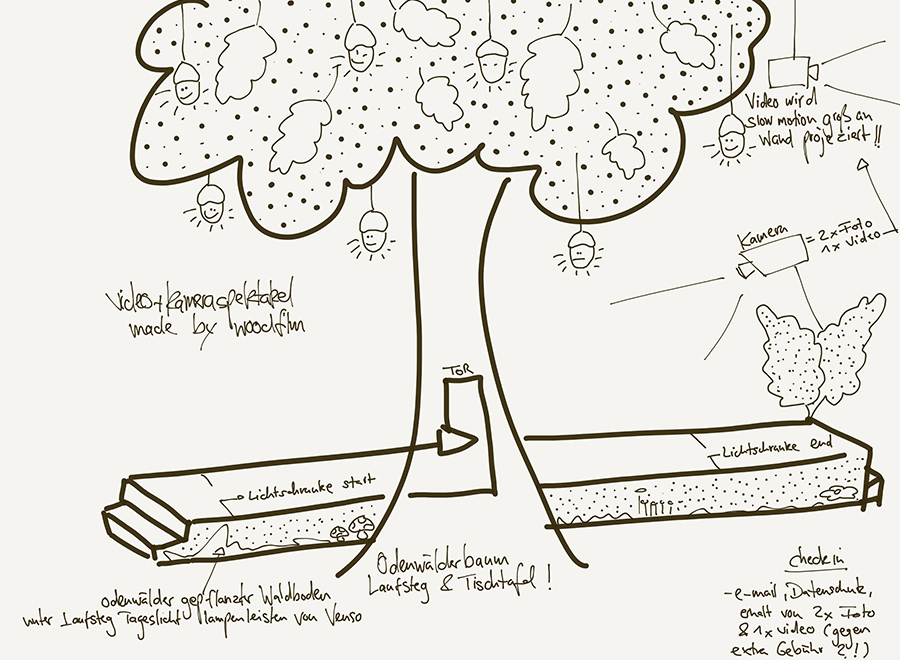 Video wird
slow motion groß an
Wand projeziert!!
Kamera
= 2x Foto
1x Video
Video + Kameraspektakel
made by woodfilm
TOR
Lichtschranke start
Lichtschranke end
Odenwälderbaum
Laufsteg & Tischtafel!
Odenwälder gepflanzter Waldboden
unter Laufsteg Tageslicht lampenleisten von Venso
check in
- e-mail, Datenschutz,
erhalt von 2x Foto
& 1x video (gegen
extra Gebühr ?!)